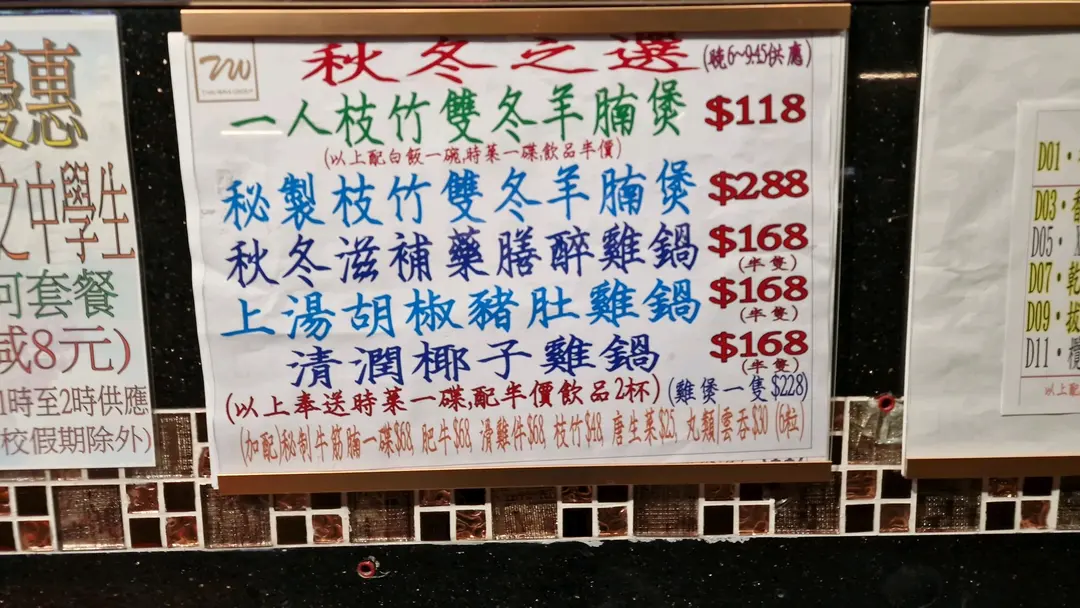 優惠
之中學生
何套餐
減8元)
1時至2時供應
校假期除外)
TW
秋冬之選(晚6~9:45供應)
一人枝竹雙冬羊腩煲 $118
(以上配白飯一碗,時菜一碟,飲品半價)
秘製枝竹雙冬羊腩煲 $288
秋冬滋補藥膳醉雞鍋 $168
(半隻)
上湯胡椒豬肚雞鍋 $168
(半隻)
清潤椰子雞鍋 $168
(半隻)
(以上奉送時菜一碟,配半價飲品2杯)(雞煲一隻$228)
(加配)秘制牛筋腩一碟$68, 肥牛$68, 滑雞件$68, 枝竹$48, 唐生菜$25, 丸類雲吞$30 (6粒)
D01·
D03·香
D05·
D07·乾
D09·拔
D11·欖
以上配